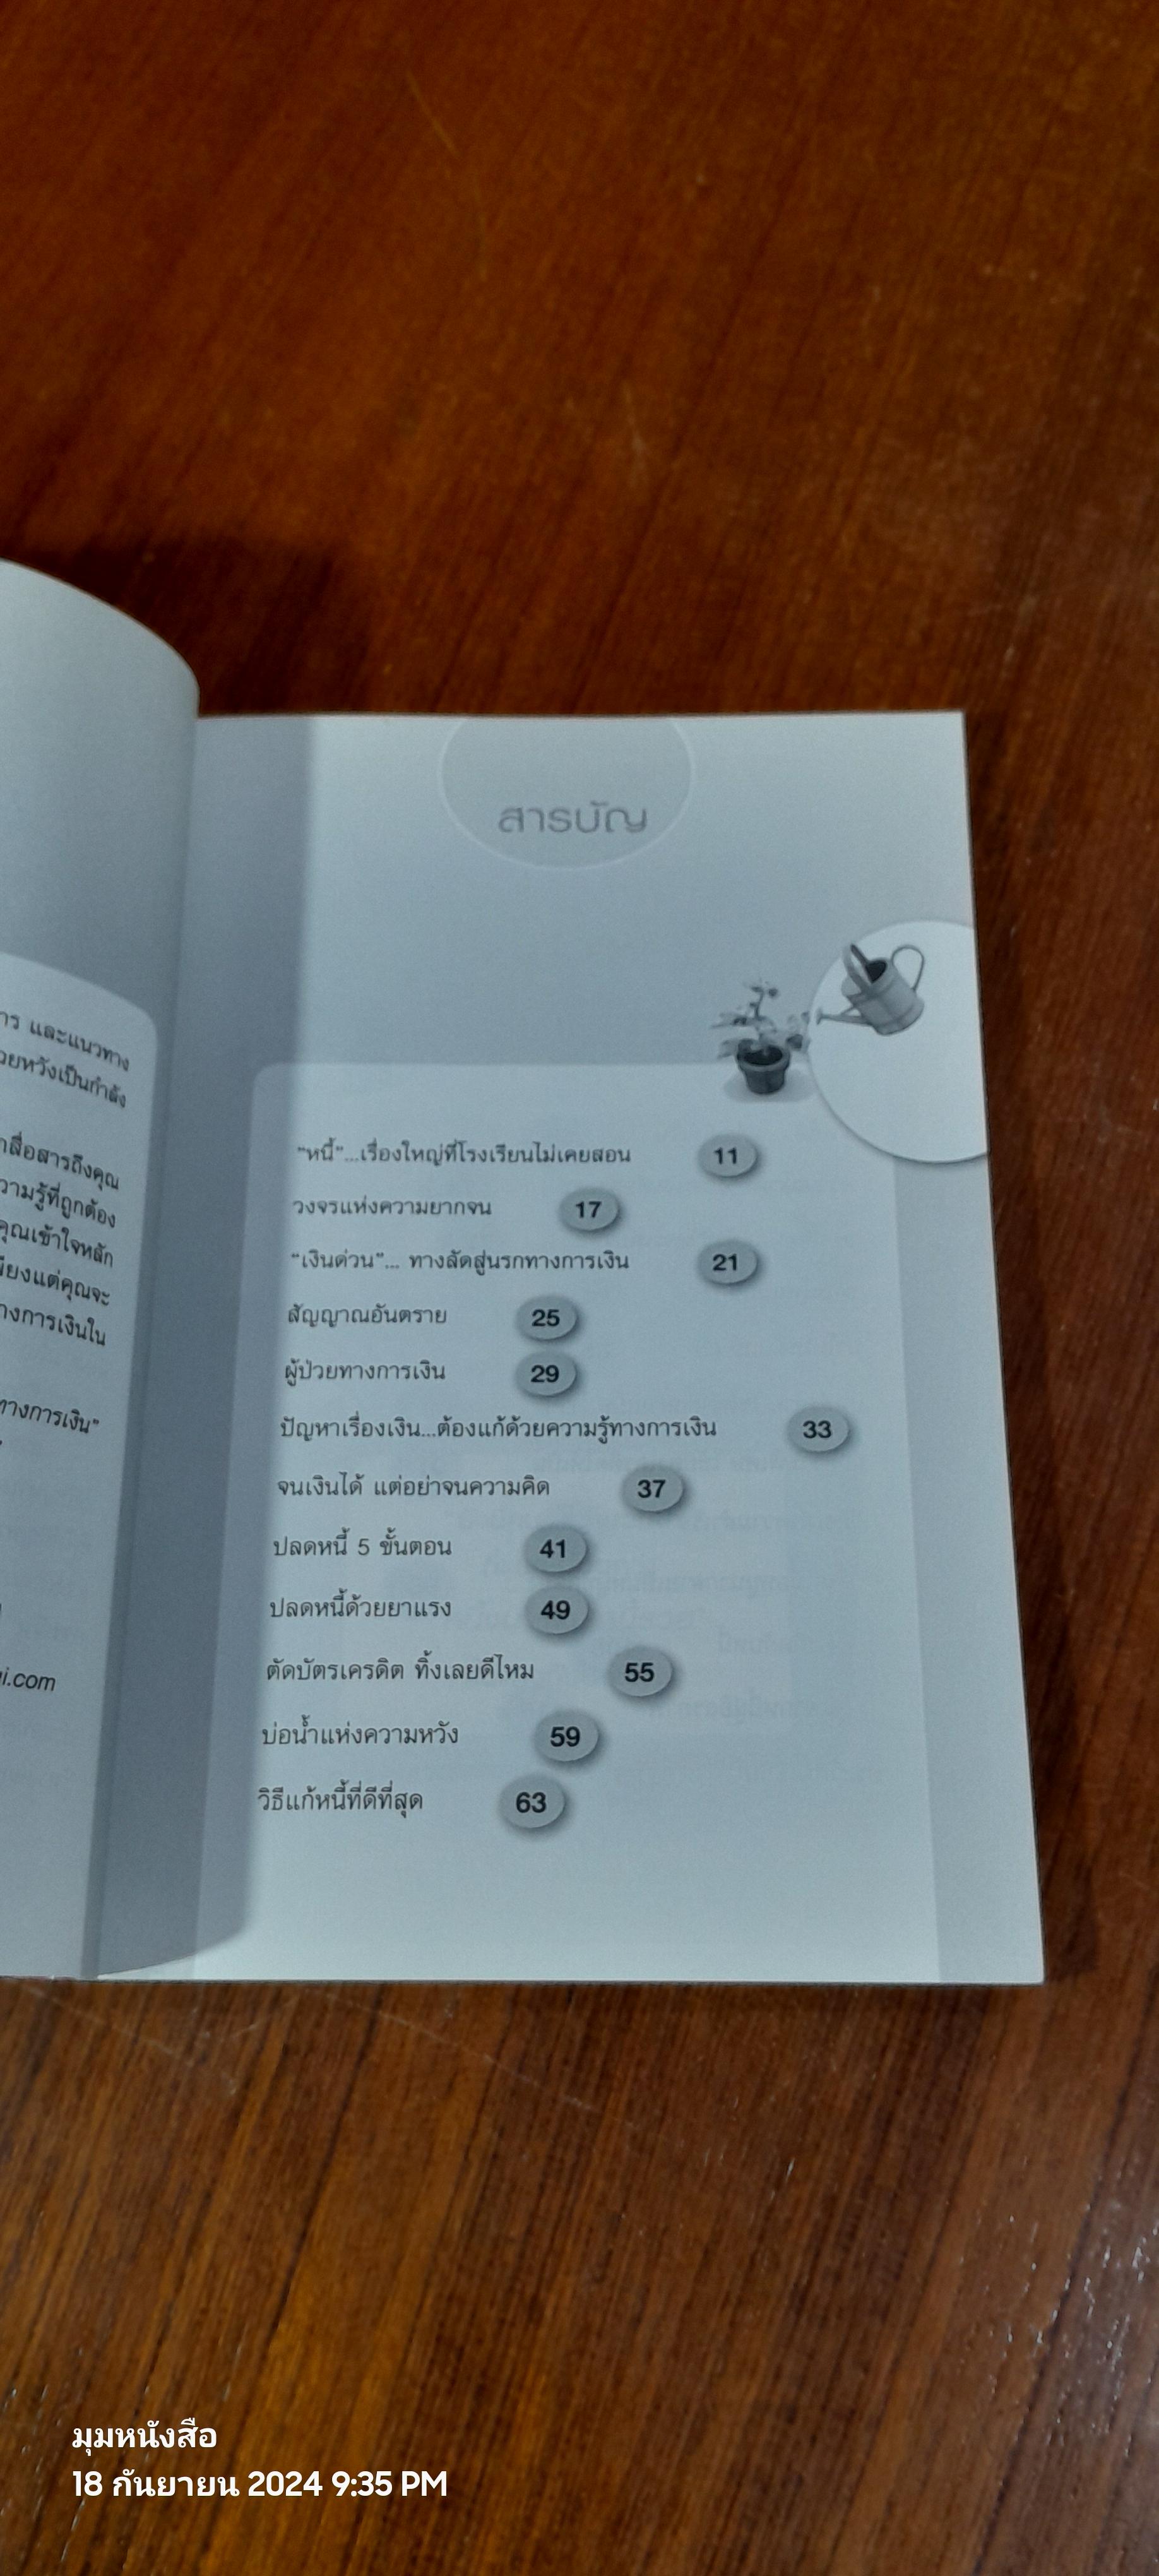 ร และแนวทาง
วยหวังเป็นกำลัง
สื่อสารถึงคุณ
วามรู้ที่ถูกต้อง
คุณเข้าใจหลัก
พียงแต่คุณจะ
างการเงินใน
ทางการเงิน”
i.com
สารบัญ
“หนี้”...เรื่องใหญ่ที่โรงเรียนไม่เคยสอน 11
วงจรแห่งความยากจน 17
“เงินด่วน”... ทางลัดสู่นรกทางการเงิน 21
สัญญาณอันตราย 25
ผู้ป่วยทางการเงิน 29
ปัญหาเรื่องเงิน...ต้องแก้ด้วยความรู้ทางการเงิน 33
จนเงินได้ แต่อย่าจนความคิด 37
ปลดหนี้ 5 ขั้นตอน 41
ปลดหนี้ด้วยยาแรง 49
ตัดบัตรเครดิต ทิ้งเลยดีไหม 55
บ่อน้ำแห่งความหวัง 59
วิธีแก้หนี้ที่ดีที่สุด 63
มุมหนังสือ
18 กันยายน 2024 9:35 PM